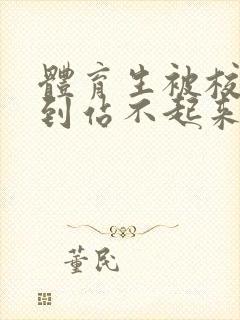 體育生被校
到佔不起來
董民